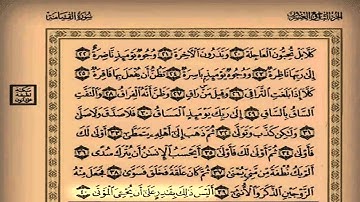 الجزء التاسع والعشرون
سورة القيامة
كَلَّا بَلْ تُحِبُّونَ ٱلْعَاجِلَةَ ٢٠ وَتَذَرُونَ ٱلْءَاخِرَةَ ٢١ وُجُوهٌ يَوْمَئِذٍ نَّاضِرَةٌ ٢٢
إِلَىٰ رَبِّهَا نَاظِرَةٌ ٢٣ وَوُجُوهٌ يَوْمَئِذٍ بَاسِرَةٌ ٢٤ تَظُنُّ أَن يُفْعَلَ بِهَا فَاقِرَةٌ ٢٥
كَلَّا إِذَا بَلَغَتِ ٱلتَّرَاقِيَ ٢٦ وَقِيلَ مَنْ رَاقٍ ٢٧ وَظَنَّ أَنَّهُ ٱلْفِرَاقُ ٢٨ وَٱلْتَفَّتِ
ٱلسَّاقُ بِٱلسَّاقِ ٢٩ إِلَىٰ رَبِّكَ يَوْمَئِذٍ ٱلْمَسَاقُ ٣٠ فَلَا صَدَّقَ وَلَا صَلَّىٰ
٣١ وَلَٰكِن كَذَّبَ وَتَوَلَّىٰ ٣٢ ثُمَّ ذَهَبَ إِلَىٰ أَهْلِهِ يَتَمَطَّىٰ ٣٣
أَوْلَىٰ لَكَ فَأَوْلَىٰ ٣٤ ثُمَّ أَوْلَىٰ لَكَ فَأَوْلَىٰ ٣٥ أَيَحْسَبُ ٱلْإِنسَٰنُ أَن يُتْرَكَ سُدًى ٣٦
أَلَمْ يَكُ نُطْفَةً مِّن مَّنِيٍّ يُمْنَىٰ ٣٧ ثُمَّ كَانَ عَلَقَةً فَخَلَقَ فَسَوَّىٰ ٣٨ فَجَعَلَ مِنْهُ
ٱلزَّوْجَيْنِ ٱلذَّكَرَ وَٱلْأُنثَىٰ ٣٩ أَلَيْسَ ذَٰلِكَ بِقَٰدِرٍ عَلَىٰ أَن يُحْيِۦَ ٱلْمَوْتَىٰ ٤٠